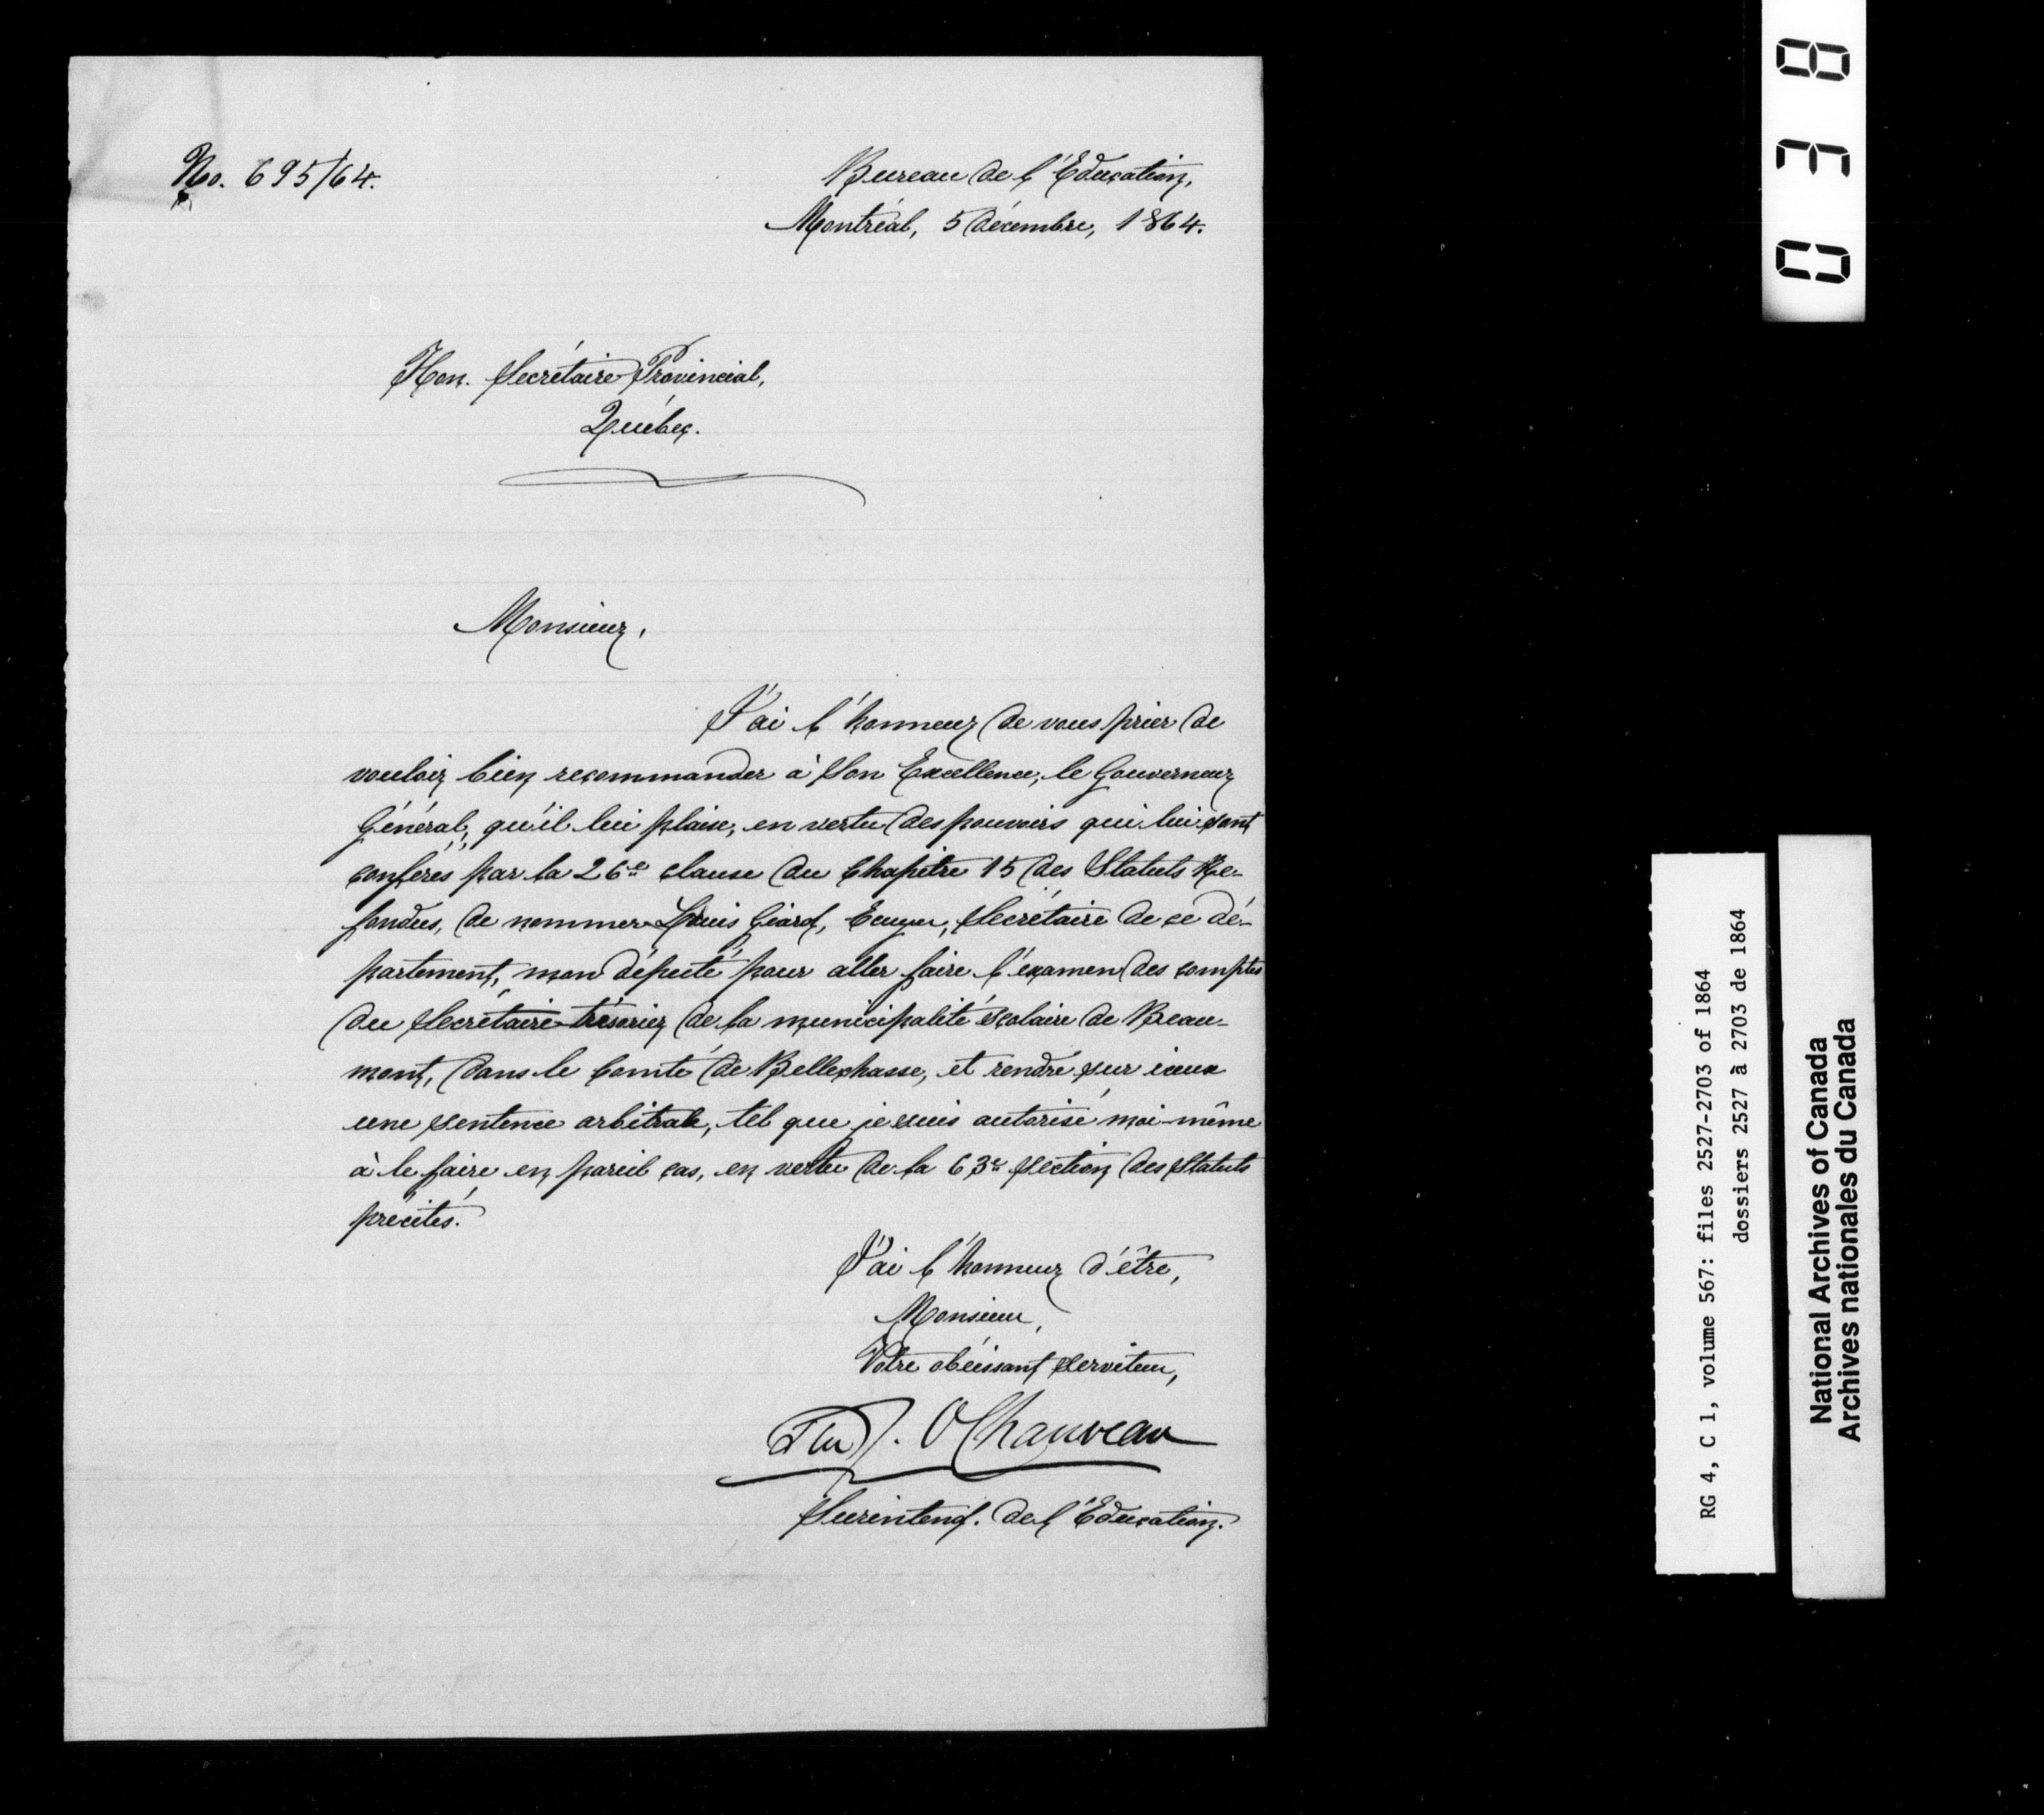 No. 695/64.
Bureau de l'Éducation,
Montréal, 5 décembre, 1864.
Hon. Secrétaire Provincial,
Québec.
Monsieur,
J'ai l'honneur de vous prier de
vouloir bien recommander à Son Excellence, le Gouverneur
Général, qu'il lui plaise, en vertu des pouvoirs qui lui sont
conférés par la 26e clause du Chapitre 15 des Statuts Re-
fondus, de nommer Louis Giard, Ecuyer, Secrétaire de ce dé-
partement, mon député pour aller faire l'examen des comptes
du Secrétaire-trésorier de la municipalité scolaire de Beau-
mont, dans le Comté de Bellechasse, et rendre sur iceux
une sentence arbitrale, tel que je suis autorisé moi-même
à le faire en pareil cas, en vertu de la 63e section des Statuts
précités.
J'ai l'honneur d'être,
Monsieur,
Votre obéissant serviteur,
J. O Chauveau
Surintend. de l'Éducation.
038
RG 4, C 1, volume 567: files 2527-2703 of 1864
dossiers 2527 à 2703 de 1864
National Archives of Canada
Archives nationales du Canada